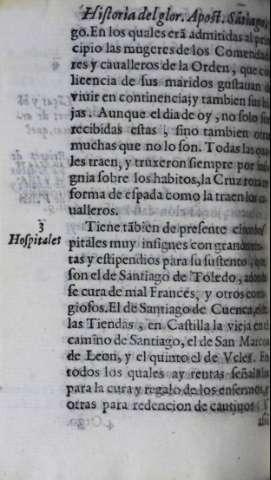 Historia del glor. Apost. Sātiago,
go. En los quales erā admitidas al prin
cipio las mugeres de los Comenda
res y caualleros de la Orden, que cō
licencia de sus maridos gustauan d
viuir en continencia, y tambien sus hi
jas. Aunque el dia de oy, no solo son
recibidas estas, sino tambien otr
muchas que no lo son. Todas las qua
les traen, y truxeron siempre por insi
gnia sobre los habitos, la Cruz roxa en
forma de espada como la traen los ca
ualleros.
3
Hospitales
Tiene tābien de presente cinco hos
pitales muy insignes con grandes ren
tas y estipendios para su sustento, que
son el de Santiago de Toledo, adonde
se cura de mal Frances, y otros conta
giosos. El de Santiago de Cuenca, el de
las Tiendas, en Castilla la vieja en el
camino de Santiago, el de San Marcos
de Leon, y el quinto el de Veles. En
todos los quales ay rentas señaladas
para la cura y regalo de los enfermos, y
otras para redencion de cautiuos. Y